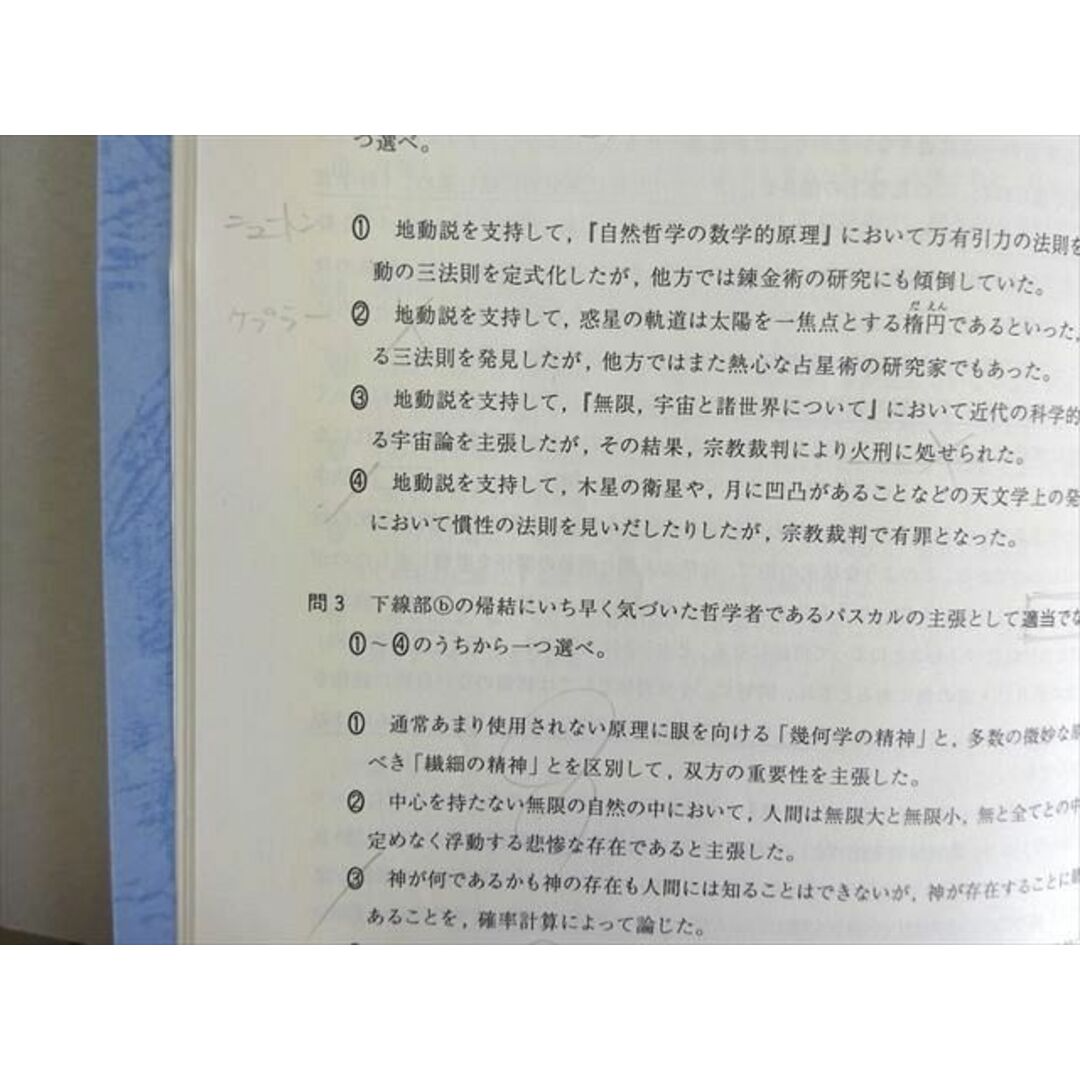 つ選べ。
ニュートン
① 地動説を支持して，『自然哲学の数学的原理』において万有引力の法則を
動の三法則を定式化したが，他方では錬金術の研究にも傾倒していた。
ケプラー
だ えん
② 地動説を支持して，惑星の軌道は太陽を一焦点とする楕円であるといった，
る三法則を発見したが，他方ではまた熱心な占星術の研究家でもあった。
③ 地動説を支持して，『無限，宇宙と諸世界について』において近代の科学的
る宇宙論を主張したが，その結果，宗教裁判により火刑に処せられた。
④ 地動説を支持して，木星の衛星や，月に凹凸があることなどの天文学上の発
において慣性の法則を見いだしたりしたが，宗教裁判で有罪となった。
問3 下線部ⓑの帰結にいち早く気づいた哲学者であるパスカルの主張として適当でな
①～④のうちから一つ選べ。
① 通常あまり使用されない原理に眼を向ける「幾何学の精神」と，多数の微妙な原
べき「繊細の精神」とを区別して，双方の重要性を主張した。
② 中心を持たない無限の自然の中において，人間は無限大と無限小，無と全てとの中
定めなく浮動する悲惨な存在であると主張した。
③ 神が何であるかも神の存在も人間には知ることはできないが，神が存在することに
あることを，確率計算によって論じた。